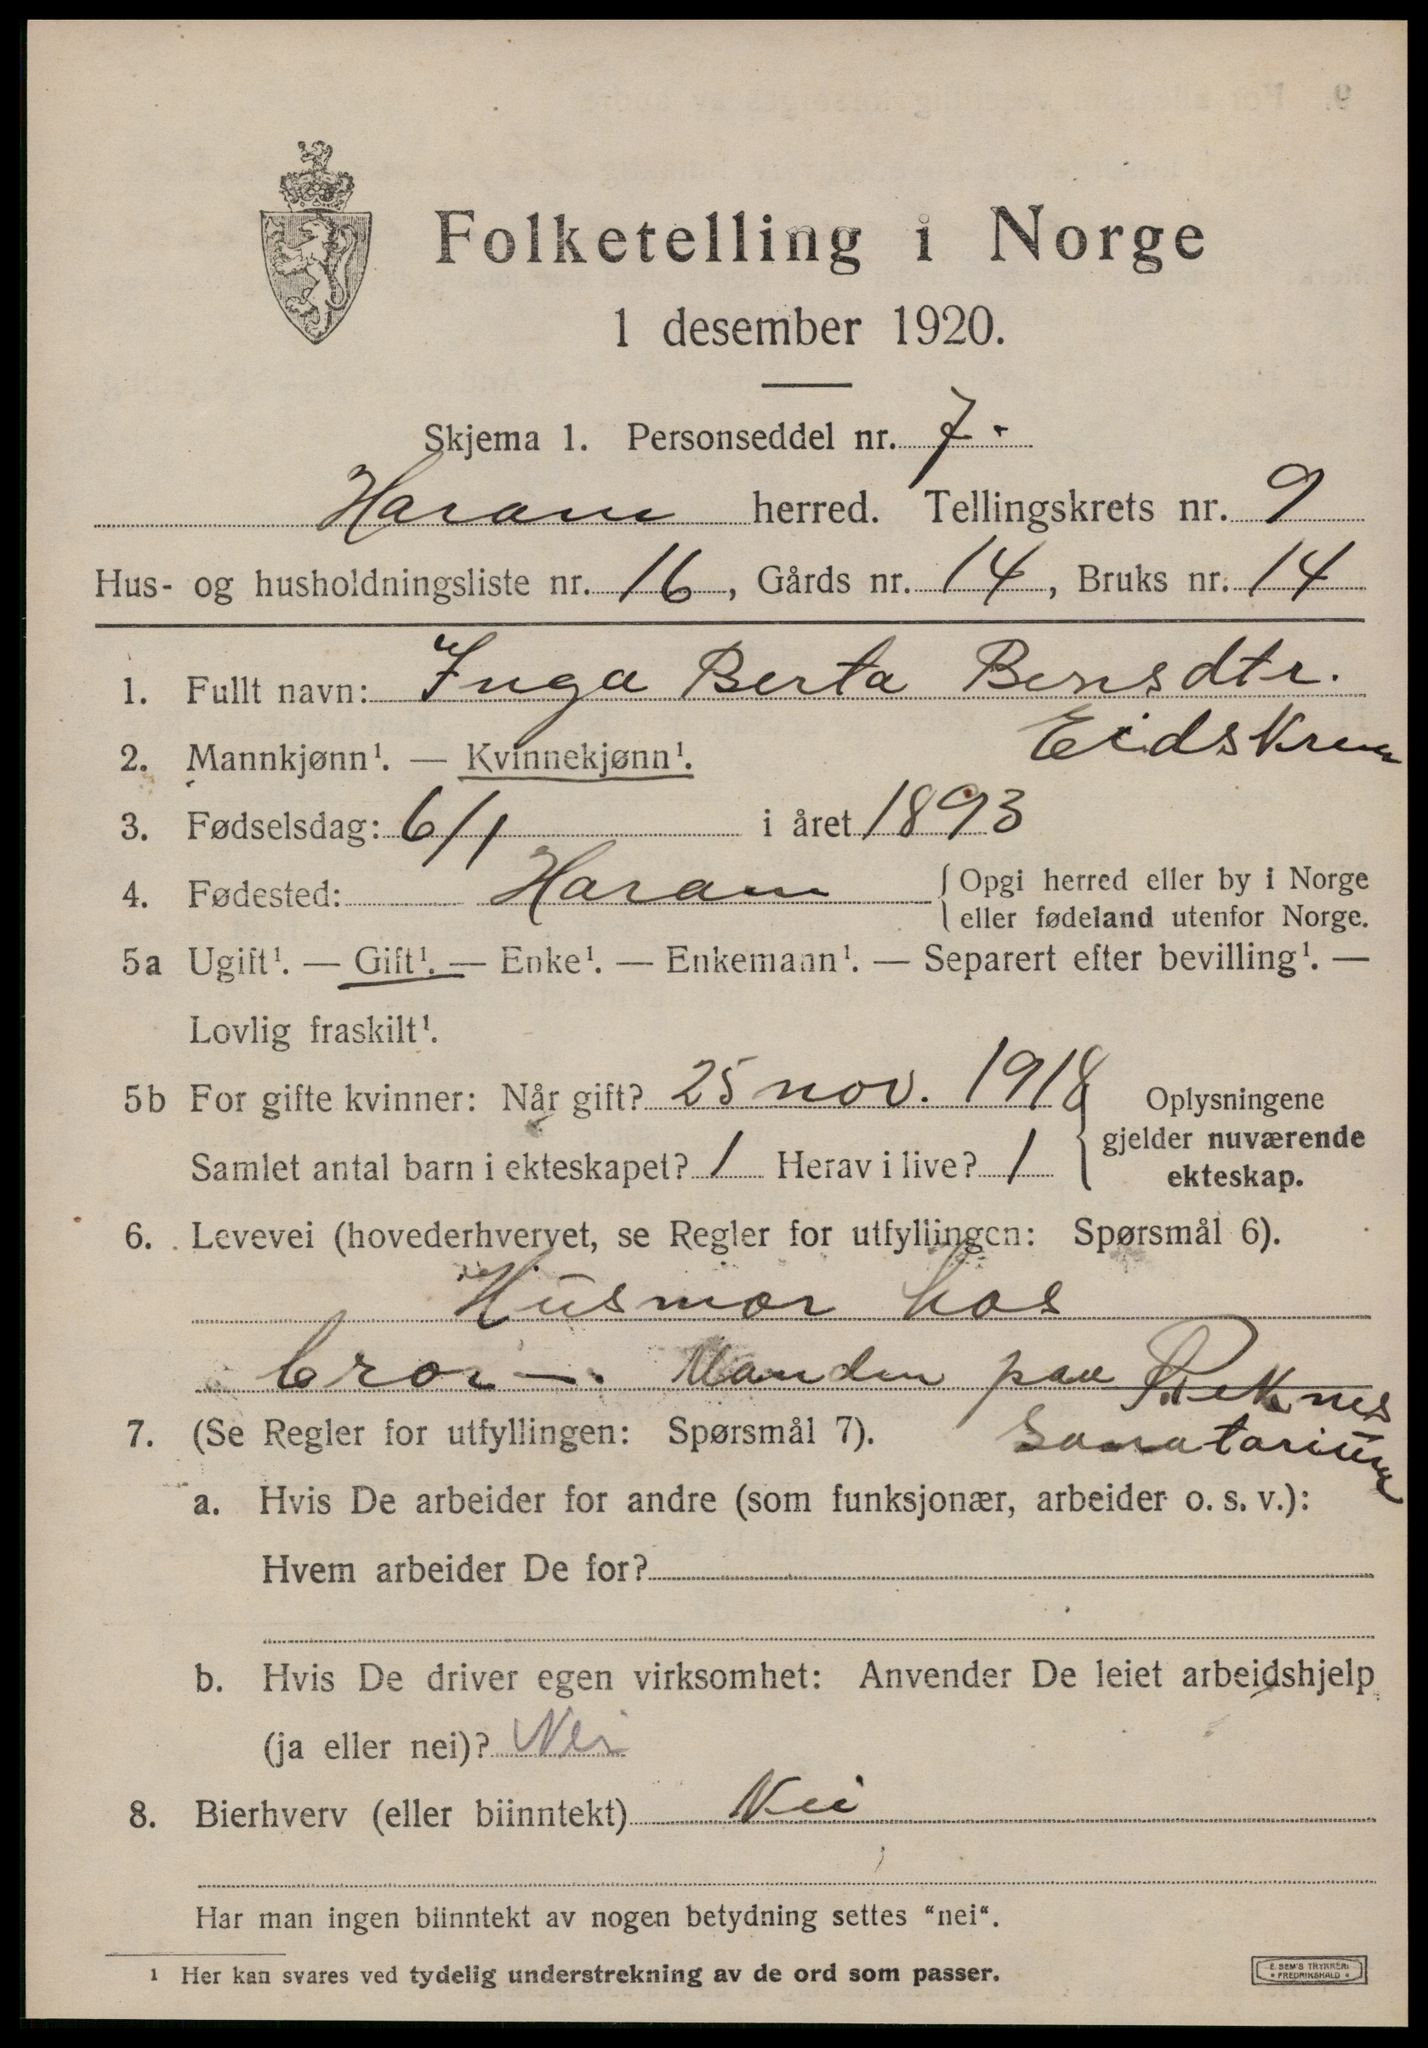 Folketelling i Norge
1 desember 1920.
Skjema 1. Personseddel nr. 7.
Haram herred. Tellingskrets nr. 9
Hus- og husholdningsliste nr. 16, Gårds nr. 14, Bruks nr. 14
1. Fullt navn: Inga Berta Bernsdtr.
Eidskrem
2. Mannkjønn¹. — Kvinnekjønn¹.
3. Fødselsdag: 6/1 i året 1893
4. Fødested: Haram { Opgi herred eller by i Norge
eller fødeland utenfor Norge.
5a Ugift¹. — Gift¹. — Enke¹. — Enkemann¹. — Separert efter bevilling¹. —
Lovlig fraskilt¹.
5b For gifte kvinner: Når gift? 25 nov. 1918
Samlet antal barn i ekteskapet? 1 Herav i live? 1
Oplysningene
gjelder nuværende
ekteskap.
6. Levevei (hovederhvervet, se Regler for utfyllingen: Spørsmål 6).
Husmor hos
bror —. Manden paa Reknes
Sanatorium
7. (Se Regler for utfyllingen: Spørsmål 7).
a. Hvis De arbeider for andre (som funksjonær, arbeider o. s. v.):
Hvem arbeider De for?
b. Hvis De driver egen virksomhet: Anvender De leiet arbeidshjelp
(ja eller nei)? Nei
8. Bierhverv (eller biinntekt) Nei
Har man ingen biinntekt av nogen betydning settes "nei".
¹ Her kan svares ved tydelig understrekning av de ord som passer.
E. SEM'S TRYKKERI
* FREDRIKSHALD *